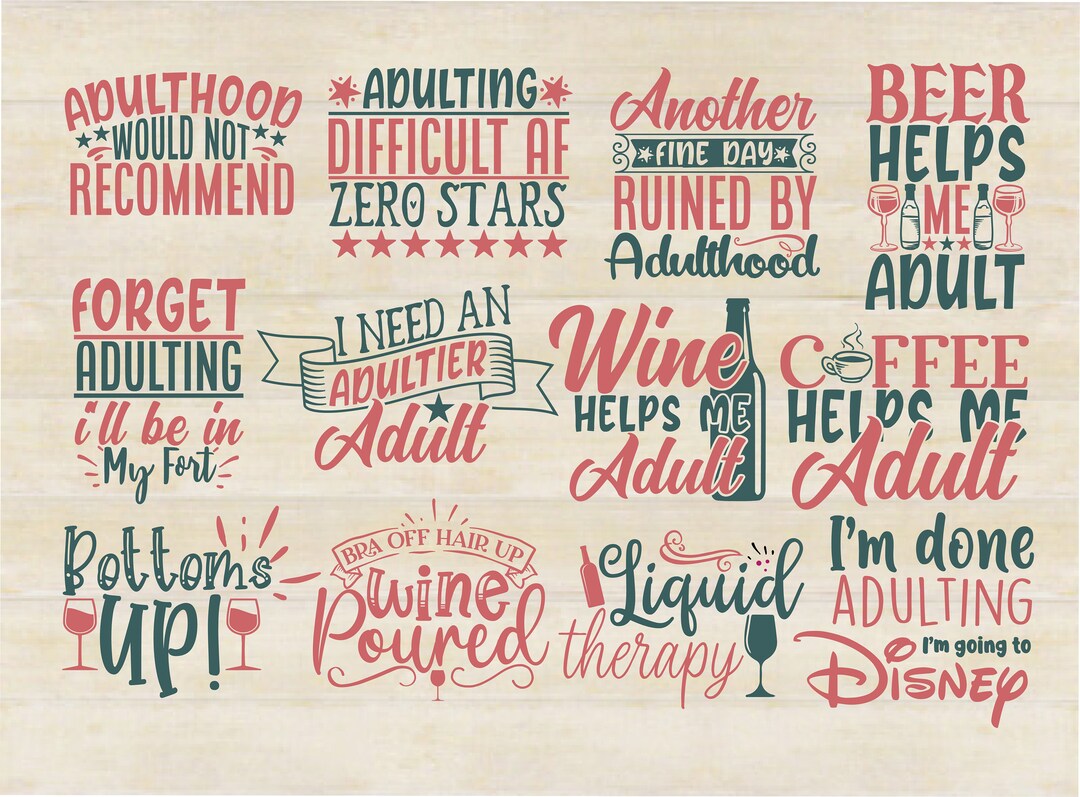 ADULTHOOD
WOULD NOT
RECOMMEND
ADULTING
DIFFICULT AF
ZERO STARS
Another
FINE DAY
RUINED BY
Adulthood
BEER
HELPS
ME
ADULT
FORGET
ADULTING
i'll be in
My Fort
I NEED AN
ADULTIER
Adult
Wine
HELPS ME
Adult
COFFEE
HELPS ME
Adult
Bottoms
UP!
BRA OFF HAIR UP
wine
Poured
Liquid
therapy
I'm done
ADULTING
I'm going to
DISNEY